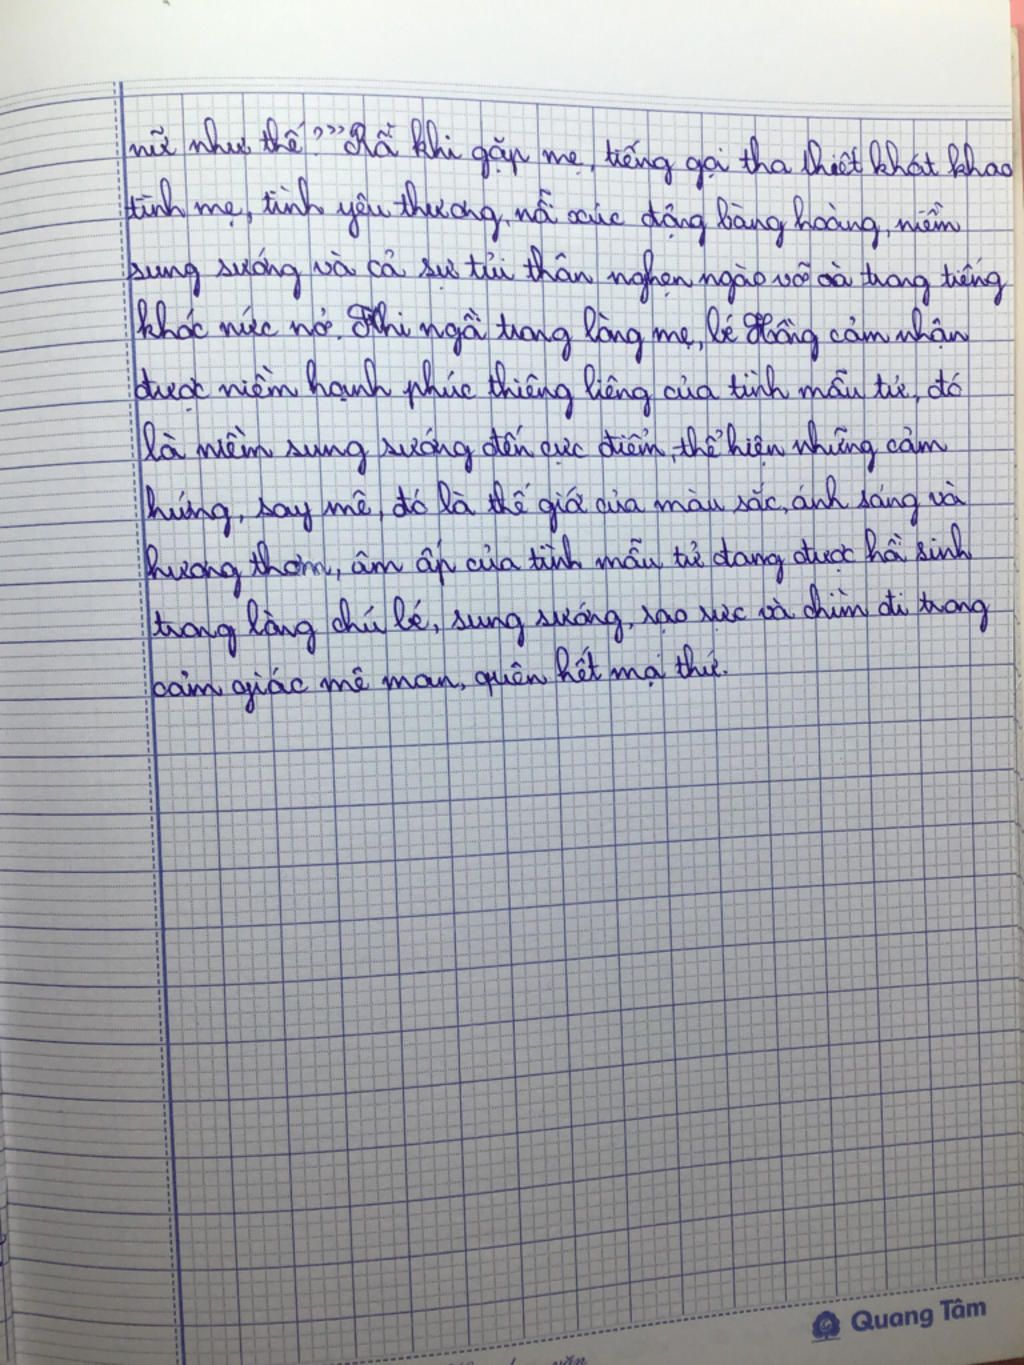 nữ như thế?"" Rồi khi gặp mẹ, tiếng gọi tha thiết khát khao
tình mẹ, tình yêu thương, nỗi xúc động bàng hoàng, niềm
sung sướng và cả sự tủi thân nghẹn ngào vỡ oà trong tiếng
khóc nức nở. Khi ngồi trong lòng mẹ, bé Hồng cảm nhận
được niềm hạnh phúc thiêng liêng của tình mẫu tử, đó
là niềm sung sướng đến cực điểm, thể hiện những cảm
hứng, say mê, đó là thế giới của màu sắc, ánh sáng và
hương thơm, âm ấp của tình mẫu tử đang được hồi sinh
trong lòng chú bé, sung sướng, rạo rực và chìm đi trong
cảm giác mê man, quên hết mọi thứ.
Quang Tâm
văn